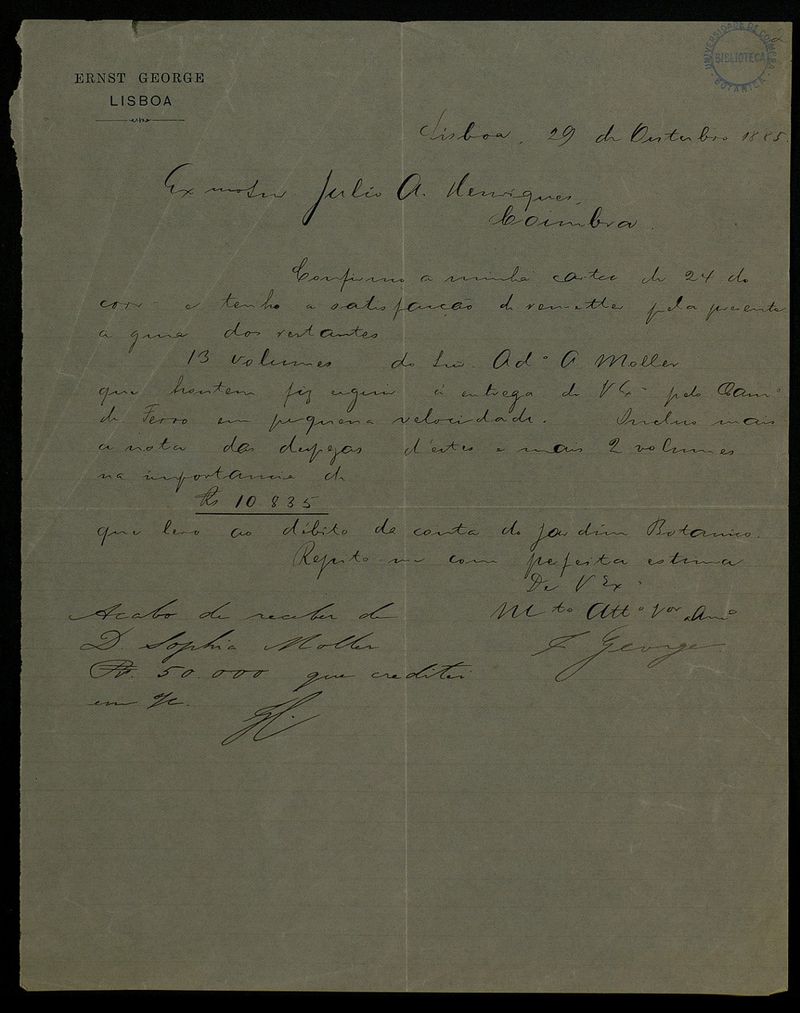 ERNST GEORGE
LISBOA
UNIVERSIDADE DE COIMBRA
BIBLIOTECA
BOTANICA
Lisboa, 29 de Outubro 1885.
Exmo Snr Julio A. Henriques,
Coimbra.
Confirmo a minha carta de 24 do
corr e tenho a satisfação de remetter pela presente
a guia dos restantes
13 volumes do Snr. Ado A Moller
que hontem fiz seguir á entrega de V Ex pelo Camo
de Ferro em pequena velocidade. Incluo mais
a nota das despezas d'estes e mais 2 volumes
na importancia de
Rs 10 835
que levo ao débito da conta do Jardim Botanico.
Repito-me com perfeita estima
De V Ex
Mto Atto Vor e Amo
George
Acabo de receber de
D. Sophia Moller
Rs. 50.000 que creditei
em